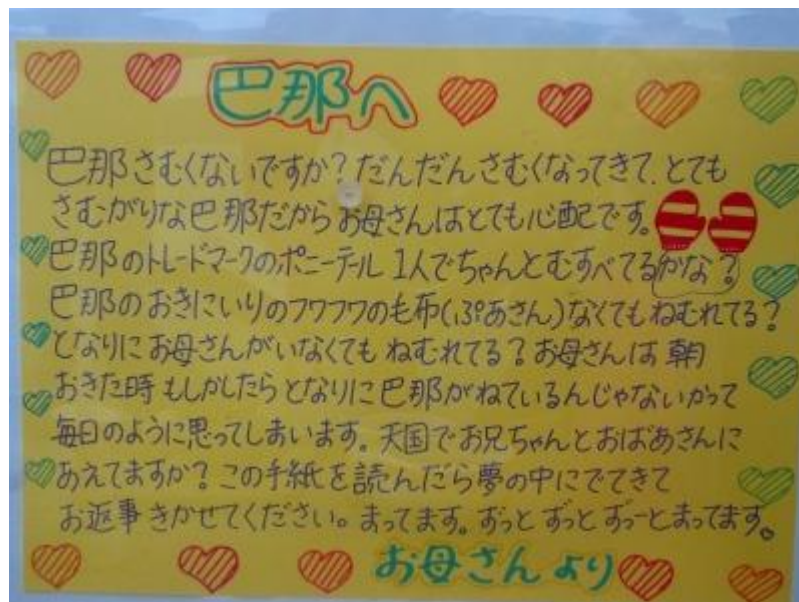 巴那へ
巴那さむくないですか？だんだんさむくなってきて、とても
さむがりな巴那だからお母さんはとても心配です。
巴那のトレードマークのポニーテール 1人でちゃんとむすべてるかな？
巴那のおきにいりのフワフワの毛布(ぷあさん)なくてもねむれてる？
となりにお母さんがいなくてもねむれてる？お母さんは朝
おきた時もしかしたらとなりに巴那がねているんじゃないかって
毎日のように思ってしまいます。天国でお兄ちゃんとおばあさんに
あえてますか？この手紙を読んだら夢の中にでてきて
お返事きかせてください。まってます。ずっとずっとずーっとまってます。
お母さんより